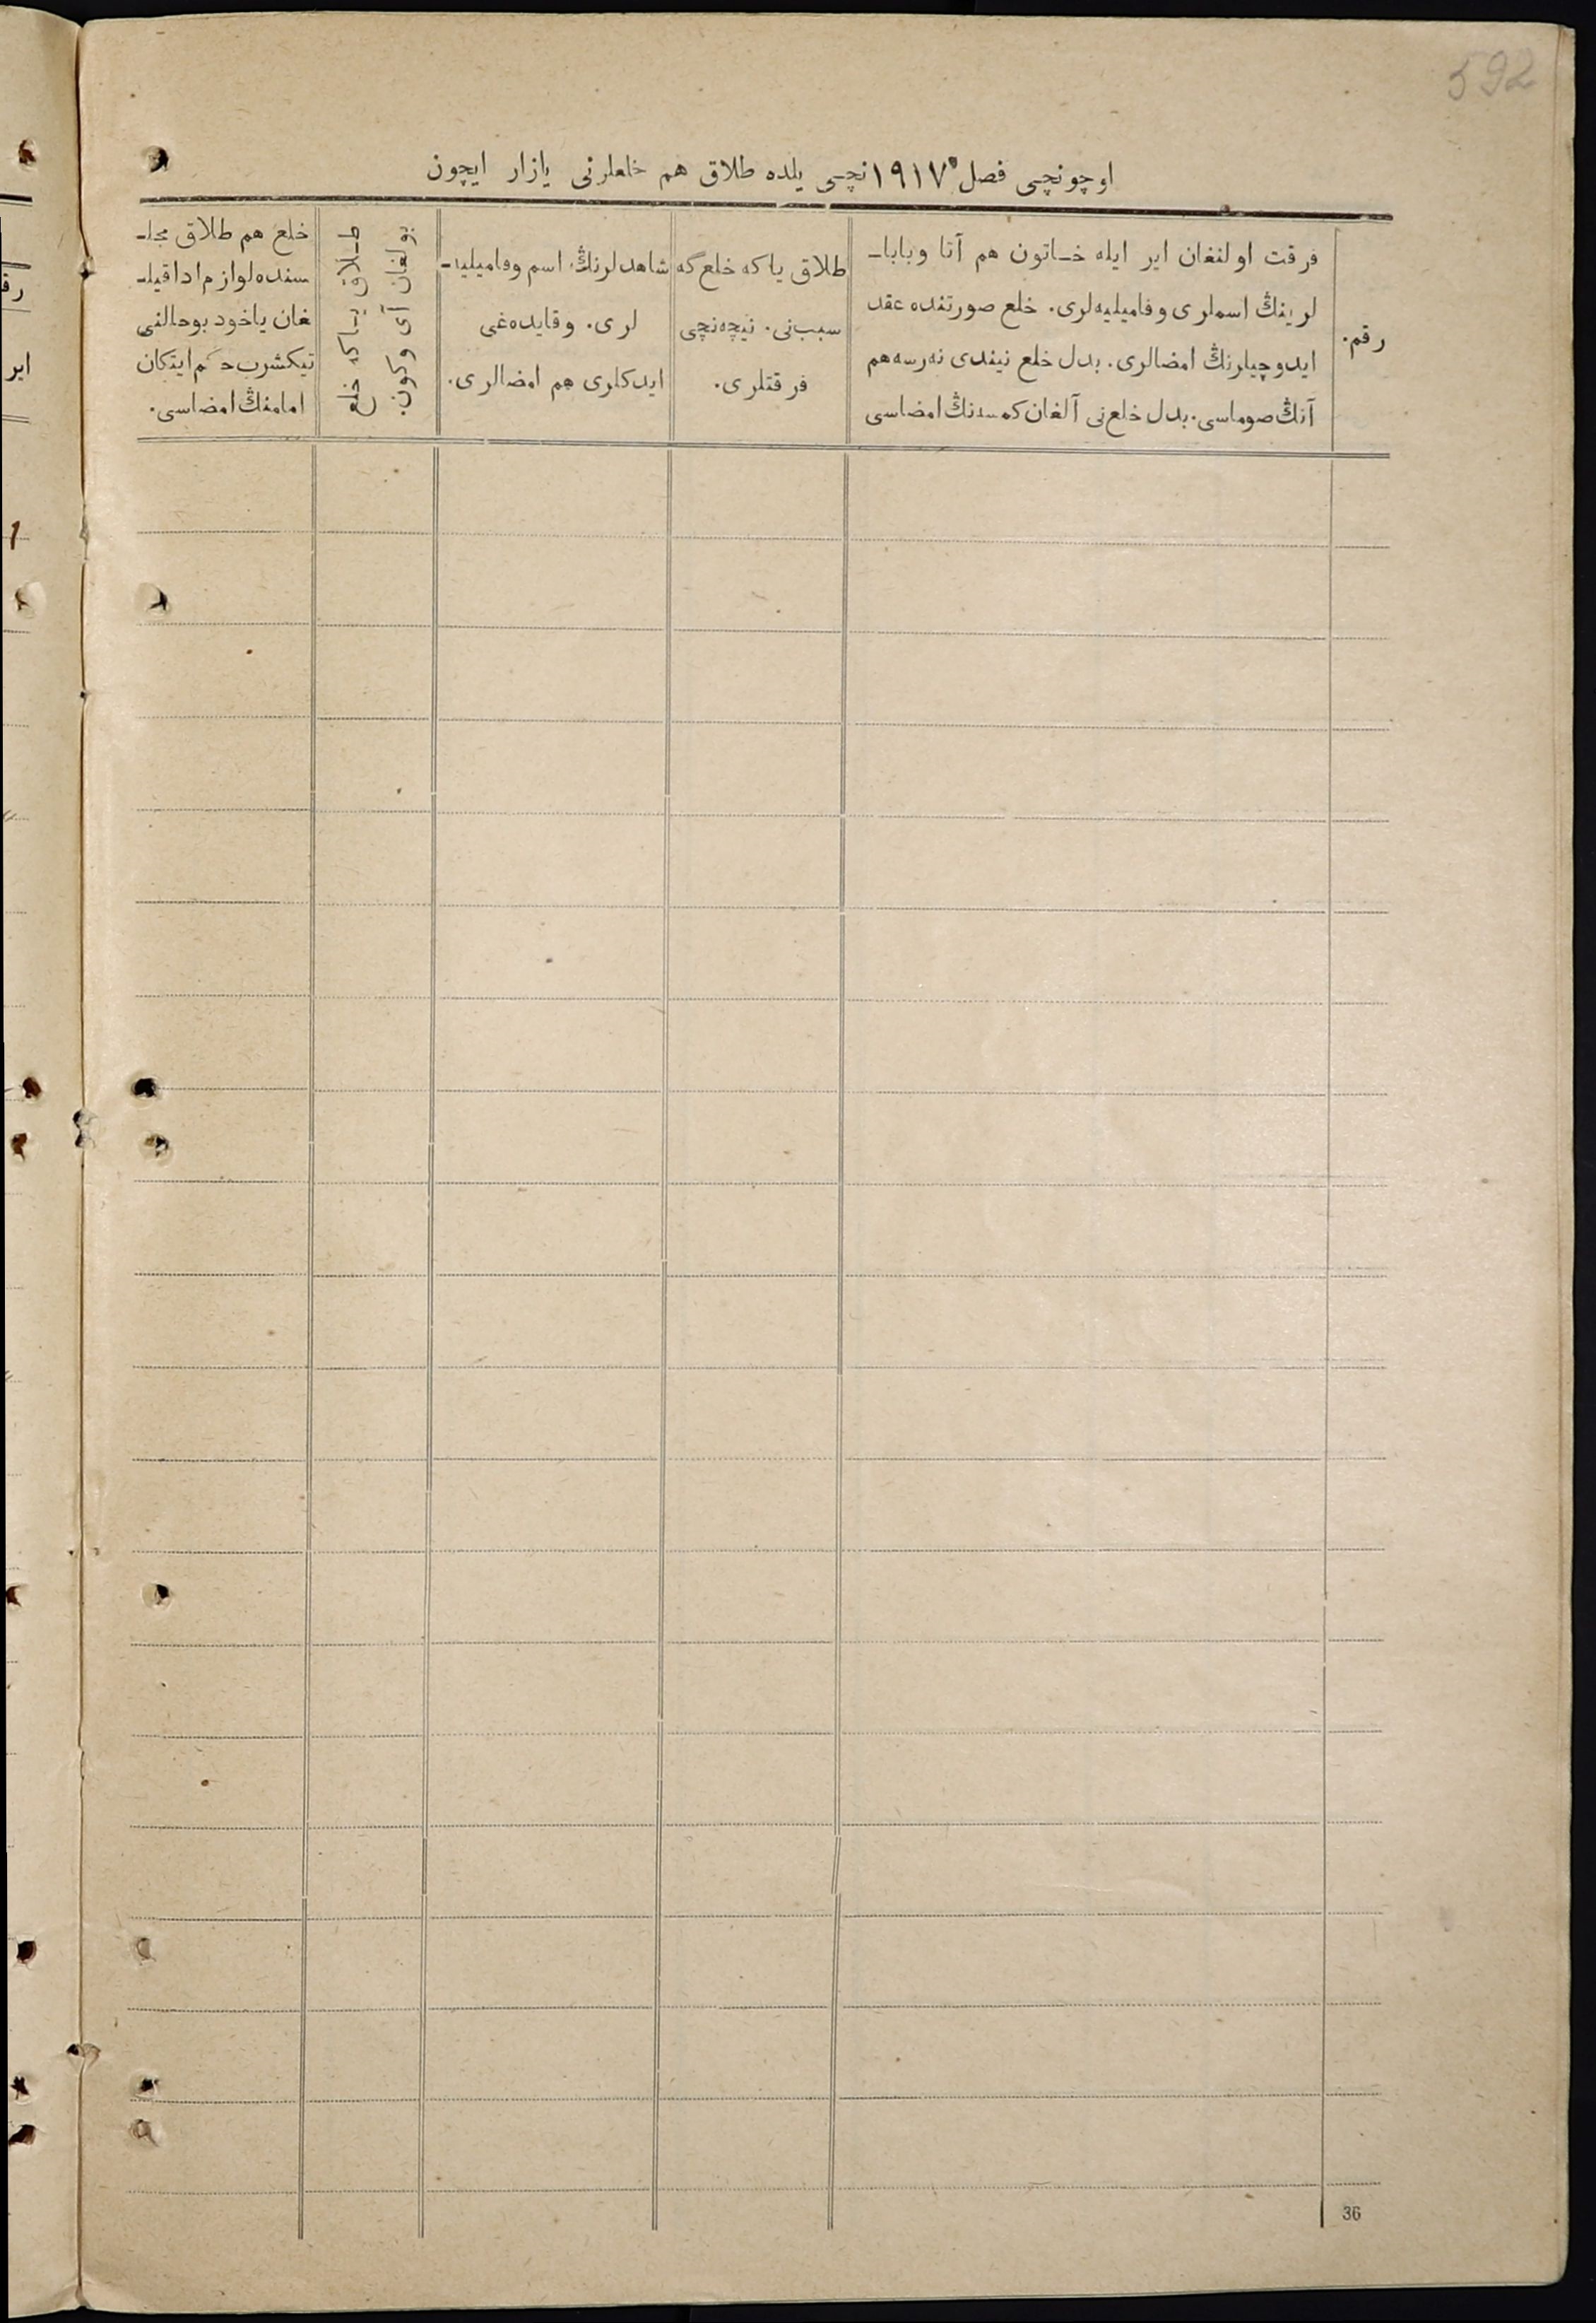 592
اوچونچی فصل ١٩١٧ نچی یلده طلاق هم خلعلرنی یازار ایچون
رقم.
فرقت اولنغان ایر ایله خاتون هم آتا وبابا‌ـ
لرینڭ اسملری وفامیلیه‌لری. خلع صورتنده عقد
ایدوچیلرنڭ امضالری. بدل خلع نیندی نەرسە هم
آنڭ صوماسی. بدل خلع‌نی آلغان کمسەنڭ امضاسی
طلاق یاکه خلع گه
سبب‌نی. نیچەنچی
فرقتلری.
شاهدلرنڭ اسم وفامیلیه‌ـ
لری. وقایده‌غی
ایدکلری هم امضالری.
طلاق یاکه خلع
بولغان آی وکون.
خلع هم طلاق مجلـ
سنده لوازم ادا قیلـ
غان یاخود بوحالنی
تیکشرب حکم ایتکان
امامنڭ امضاسی.
36